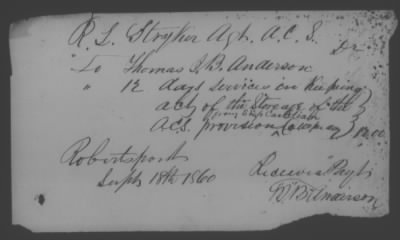 R. L. Stryker Agt. A.C.S.
Dr
To Thomas I. B. Anderson
" 12 days services in Keeping
act of the Storage of the
A.C.S. provision 12.00
Robertsport
Sept 18th 1860
Received Payt
B. Anderson